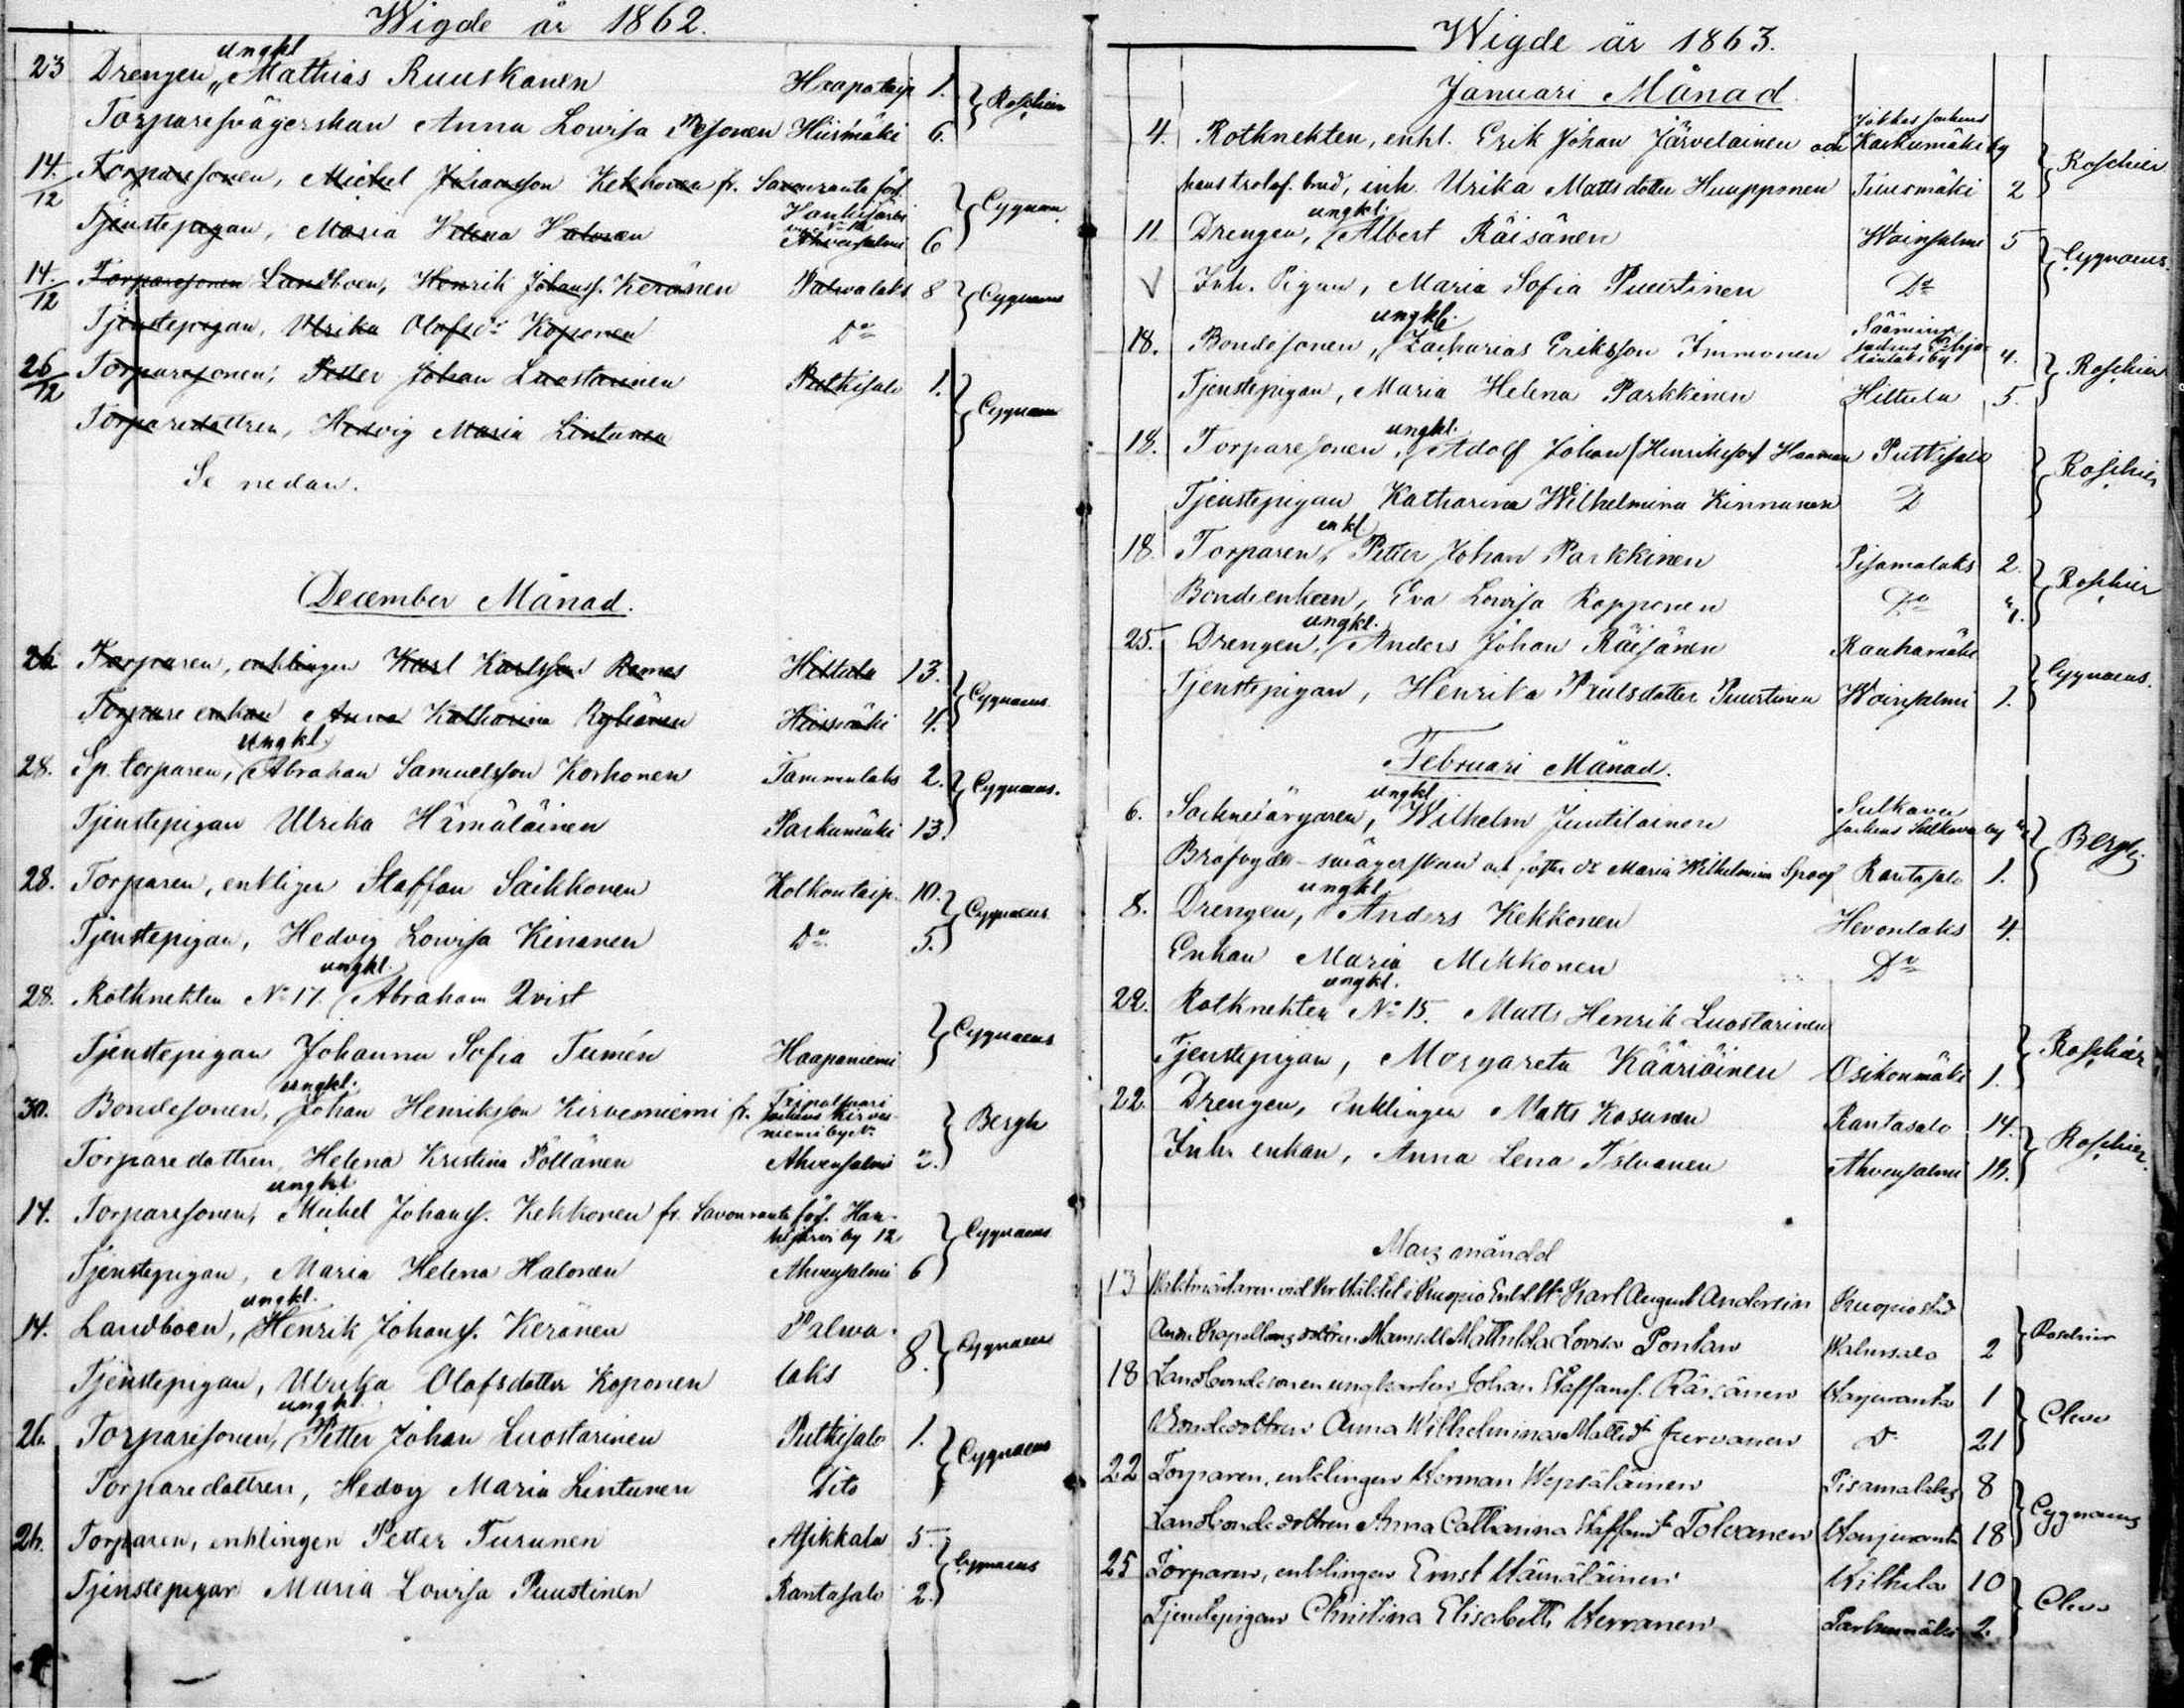 Wigde år 1862.
ungkl
23 Drengen, Mathias Ruuskanen Haapataip 1. Roschier
Torparesvägerskan Anna Lovisa Pesonen Hiismäki 6.
14/12 Torparesonen, Michel Johansson Kekkonen fr. Savonranta förs. Cygnæus
Hankijärvi
Tjenstepigan, Maria Helena Halonen Ahvensalmi 6
14/12 Torparesonen Landboen, Henrik Johanss. Keränen Palvalaks 8 Cygnæus
Tjenstepigan, Ulrika Olofsdr Koponen Do
26/12 Torparesonen, Petter Johan Luostarinen Putkisalo 1. Cygnæus
Torparedottren, Hedvig Maria Lintunen
Se nedan.
December Månad.
26. Torparen, enklingen Karl Karlsson Romes Hiltula 13. Cygnæus
Torpare enkan Anna Katharina Ryhänen Hiismäki 4.
ungkl.
28. Sp. torparen, Abraham Samuelsson Korhonen Tammenlaks 2. Cygnaeus.
Tjenstepigan Ulrika Hämäläinen Parkumäki 13.
28. Torparen, enkligen Staffan Saikkonen Kolkontaip. 10. Cygnaeus
Tjenstepigan, Hedvig Lovisa Kinanen Do 5.
ungkl.
28. Rotknekten No 17. Abraham Qvist Cygnaeus
Tjenstepigan Johanna Sofia Tumén Haapaniemi
ungkl.
30. Bondesonen, Johan Henriksson Kirvesniemi fr. Kirves- Bergh
niemi by No
Torparedottren, Helena Kristina Pöllänen Ahvensalmi 2.
ungkl
14. Torparesonen, Michel Johanss. Kekkonen fr. Savonranta förs. Han- Cygnaeus
kijärvi by 12
Tjenstepigan, Maria Helena Halonen Ahvensalmi 6
ungkl.
14. Landboen, Henrik Johanss. Keränen Palva- 8. Cygnaeus
Tjenstepigan, Ulrika Olofsdotter Koponen laks
ungkl.
26. Torparesonen, Petter Johan Luostarinen Putkisalo 1. Cygnaeus
Torparedottren, Hedvig Maria Lintunen Dito
26. Torparen, enklingen Petter Turunen Asikkala 5. Cygnaeus
Tjenstepigan Maria Lovisa Puustinen Rantasalo 2.
Wigde år 1863.
Januari Månad.
Jokkas sockens
4. Rotknekten, enkl. Erik Johan Järvelainen och Kaskumäki by Roschier
hans trolof. brud, inh. Ulrika Mattsdotter Huupponen Tuusmäki 2
ungkl.
11. Drengen, Albert Räisänen Woinsalmi 5 Cygnaeus.
Inh. Pigan, Maria Sofia Puustinen Do
ungkl.
18. Bondesonen, Zacharias Eriksson Immonen Sääminge sockens 4. Roschier
Tjenstepigan, Maria Helena Parkkinen Hiltula 5.
ungkl.
18. Torparesonen, Adolf Johan (Henriksson) Haaman Putkisalo Roschier
Tjenstepigan Katharina Wilhelmina Kinnunen D
enkl.
18. Torparen, Petter Johan Parkkinen Pisamalaks 2. Roschier
Bondeenkan, Eva Lovisa Ropponen Do
ungkl.
25. Drengen, Anders Johan Räisänen Rauhamäki Cygnaeus.
Tjenstepigan, Henrika Paulsdotter Puustinen Woinsalmi 1.
Februari Månad.
ungkl
6. Sockneärgaren, Wilhelm Juutilainen Sulkava Bergh
sockens Sulkava by
svägerskan Maria Wilhelmina Spoof Rantasalo 1.
ungkl.
8. Drengen, Anders Kekkonen Hevonlaks 4.
Enkan Maria Mikkonen Do
ungkl.
22. Rotknekten No 15. Matts Henrik Luostarinen Roschier
Tjenstepigan, Margareta Kääriäinen Osikonmäki 1.
22. Drengen, Enklingen Matts Kosunen Rantasalo 14. Roschier.
Inh. enkan, Anna Lena Tolvanen Ahvensalmi
Mars månad
13 Kuopio Karl August Andersin Kuopio stad Roschier
Mamsell Mathilda Lovisa Pontan 2
18 Landbondesonen ungkarlen Johan Staffanss. Räisänen Harjuranta 1 Cleve
Bondedottren Anna Wilhelmina Mattsdr Jurvanen Do 21
22 Torparen, enklingen Herman Wepsäläinen Pisamalaks 8 Cygnaeus
Landbondedottren Anna Catharina Staffansdr Tolvanen Harjuranta 18
25 Torparen, enklingen Ernst Hämäläinen 10 Cleve
Tjenstepigan Christina Elisabeth Herranen Parkumäki 2.